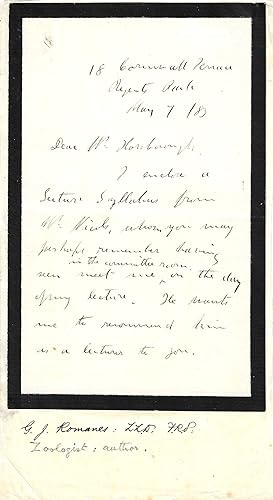 18 Cornwall Terrace
Regents Park
May 7 /89
Dear Mr.
I enclose a
Lecture Syllabus from
Mr. Nicols, whom you may
perhaps remember having
in the committee room
seen meet me, on the day
of my lecture. He wants
me to recommend him
as a lecturer to you.
G. J. Romanes: LLD. FRS.
Zoologist: author.